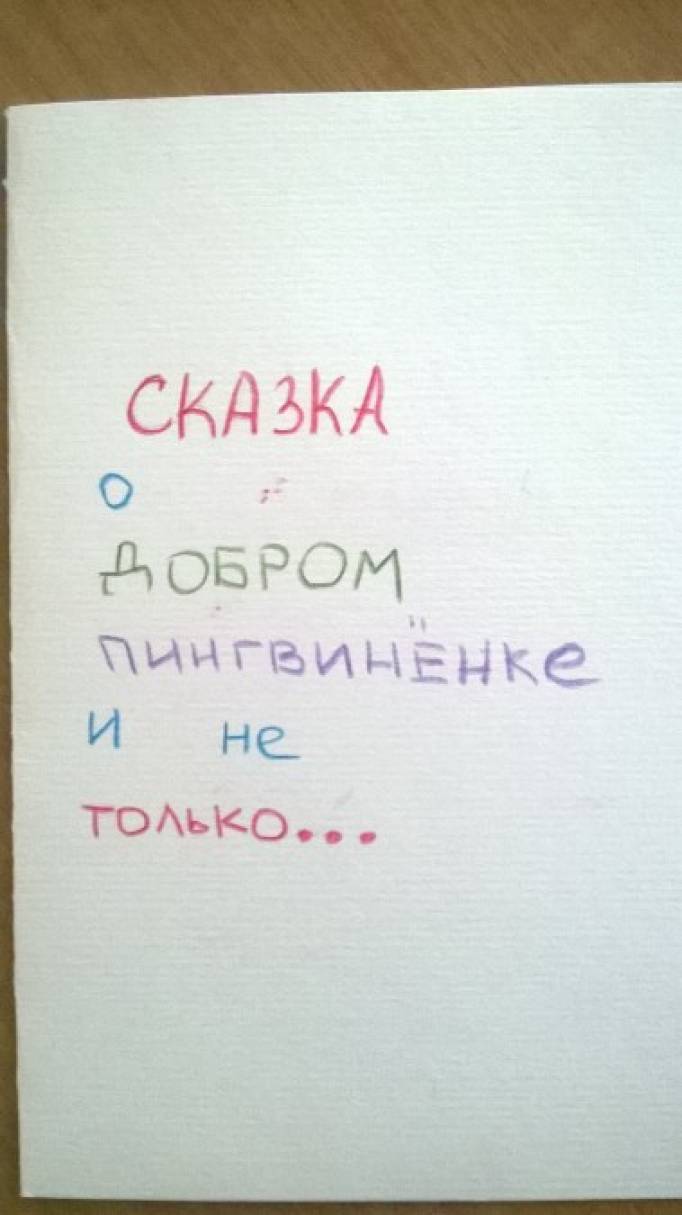 СКАЗКА
О
ДОБРОМ
ПИНГВИНЁНКЕ
И не
ТОЛЬКО...